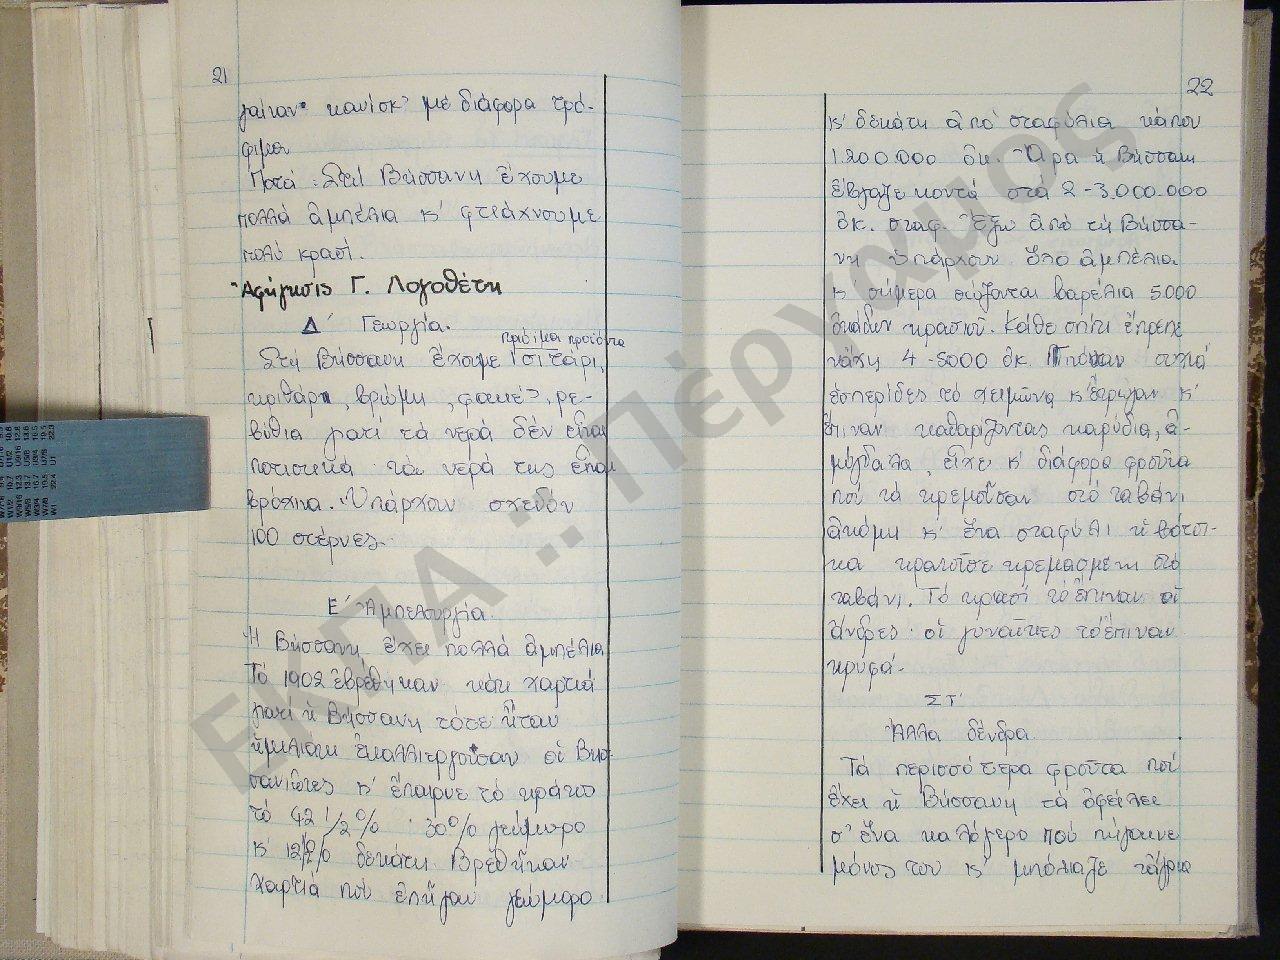 21
γαίναν κανίσκ' μέ διάφορα τρό-
φιμα
Ποτά: Στή Βήσσανη ἔχουμε
πολλά ἀμπέλια κ' φτιάχνουμε
πολύ κρασί.
Ἀφήγησις Γ. Λογοθέτη
Δ' Γεωργία.
πρώιμα προϊόντα
Στή Βήσσανη ἔχομε σιτάρι,
κριθάρι, βρώμη, φακές, ρε-
βύθια γιατί τά νερά δέν εἶναι
ποτιστικά· τά νερά της εἶναι
βρόχινα. Ὑπάρχουν σχεδόν
100 στέρνες.
Ε' Ἀμπελουργία.
Ἡ Βήσσανη ἔχει πολλά ἀμπέλια
Τό 1902 ἑβρέθηκαν κάτι χαρτιά
γιατί ἡ Βήσσανη τότε ἦταν
ἐκαλλιεργοῦσαν οἱ Βησ-
σανιῶτες κ' ἔπαιρνε τό κράτος
τό 42 1/2 % · 30% γεώμορο
κ' 12 1/2% δεκάτη Βρέθηκαν
χαρτιά πού γεώμορο
22
κ' δεκάτη ἀπό σταφύλια κάπου
1.200.000 ὀκ. Ἄρα ἡ Βήσσανη
ἔβγαζε κοντά στά 2-3.000.000
ὀκ. σταφ. Ἔξω ἀπό τή Βήσσα-
νη ὑπάρχουν ὅλο ἀμπέλια
κ' σήμερα σώζονται βαρέλια 5000
ὀκάδων κρασιοῦ. Κάθε σπίτι ἔπρεπε
νάχη 4-5000 ὀκ. Πίναν συχνά
ἑσπερίδες τό χειμῶνα κ' ἔτρωγαν κ'
ἔπιναν καθαρίζοντας καρύδια, ἀ-
μύγδαλα, εἶχε κ' διάφορα φροῦτα
πού τά κρεμοῦσαν στό ταβάνι
ἀκόμη κ' ἕνα σταφύλι ἡ βάτσι-
κα κρατοῦσε κρεμασμένη στό
ταβάνι. Τό κρασί τό ἔπιναν οἱ
ἄνδρες· οἱ γυναῖκες τό ἔπιναν
κρυφά.
ΣΤ'
Ἄλλα δένδρα.
Τά περισσότερα φροῦτα πού
ἔχει ἡ Βήσσανη τά ὀφείλει
σ' ἕνα καλόγερο πού πήγαινε
μόνος του κ' μπόλιαζε τἄγρια
ΕΚΠΑ :: Πέργαμος